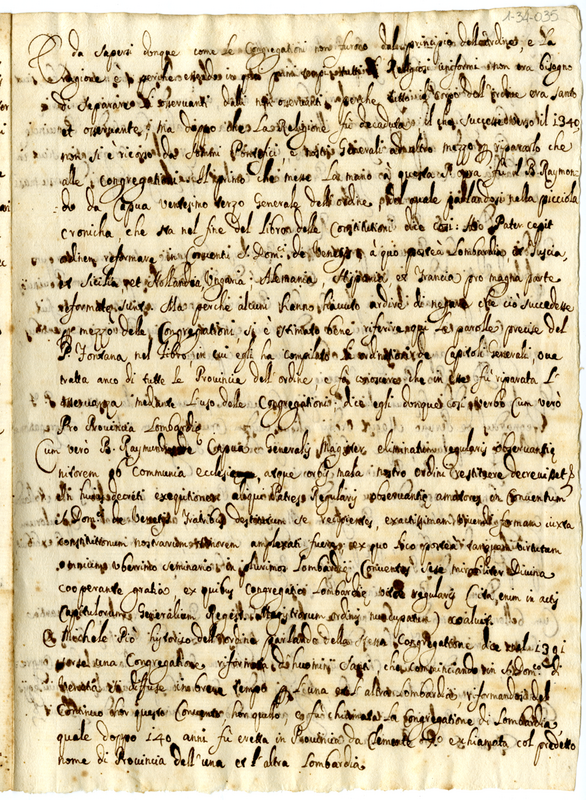 1-34-035
da sapersi donque come le Congregationi non furono dal principio dell'ordine, e la
ragione è perche essendo in quei primi tempi tutti Religiosi uniforma non era bisogno
di separare osservanti dalli non osservanti perche tutto il corpo dell'ordine era santo
et osservante, ma doppo che la Religione fù decaduta il che successe verso il 1340
non si è ricorso da sommi Pontefici e nostri Generali ad altro mezzo per ripararlo che
alle Congregationi. Il primo che messe la mano a questa opera fu il B. Raymon
do da Capua ventesimo terzo Generale dell'ordine, del quale parlandosi nella picciola
cronicha che sta nel fine del libro delle Constitutioni dice così: hic Pater cepit
ordinem reformare in Conventi S. Dom. de Venetijs à quo postea Lombardia Tuscia,
et Sicilia, et Hollandia, Ungaria, Alemania, Hispania et Francia pro magna parte
reformate sunt. Ma perche alcuni hanno havuto ardire di negare che ciò succedesse
per mezzo delle Congregationi si è stimato bene riferire qui le parole precise del
P. Fontana nel libro in cui egli ha compilato le ordinationi de Capitoli Generali, ove
tratta anco di tutte le Provincia dell'ordine e fa conoscere che in esse fù riparata l'
osservanza mediante l'uso delle Congregationi, dice egli donque così verbo Cum verò
Pro Provincia Lombardie
Cum verò B. Raymundus de Capua Generalis Magister eliminatum regularis observantie
nitorem ob communia ecclesie, atque orbis mala nostro ordini restituere decrevisset
In huius decreti exequtionem aliquot Patres Regularis observantie amatores in Conventum
S. Dom. de Venetijs fratribus destitutum se recipientes, exactissimam vivendi formam iuxta
constitutionum nostrarum tenorem amplexati fuere, ex quo loco postea tanquam virtutum
omnium uberrimo seminario in plurimos Lombardie Conventus sese mirabiliter Divina
cooperante gratia, ex quibus Congregatio Lombardie vite regularis (sic enim in actis
Capitulorum Generalium Regestis Magistrorum ordinis nuncupatur) coaluit.
Michele Pio historico dell'ordine parlando della stessa Congregatione dice nel 1391
sorse una Congregatione riformata de huomini santi che cominciando in S. Domco di
Venetia si diffuse in breve tempo per l'una et l'altra Lombardia, riformandosi del
continuo hor questo Convento hor quello, e fù chiamata la congregatione di Lombardia
quale doppo 140 anni fù eretta in Provincia da Clemente 7o e chiamata col predetto
nome di Provincia dell'una et l'altra Lombardia.